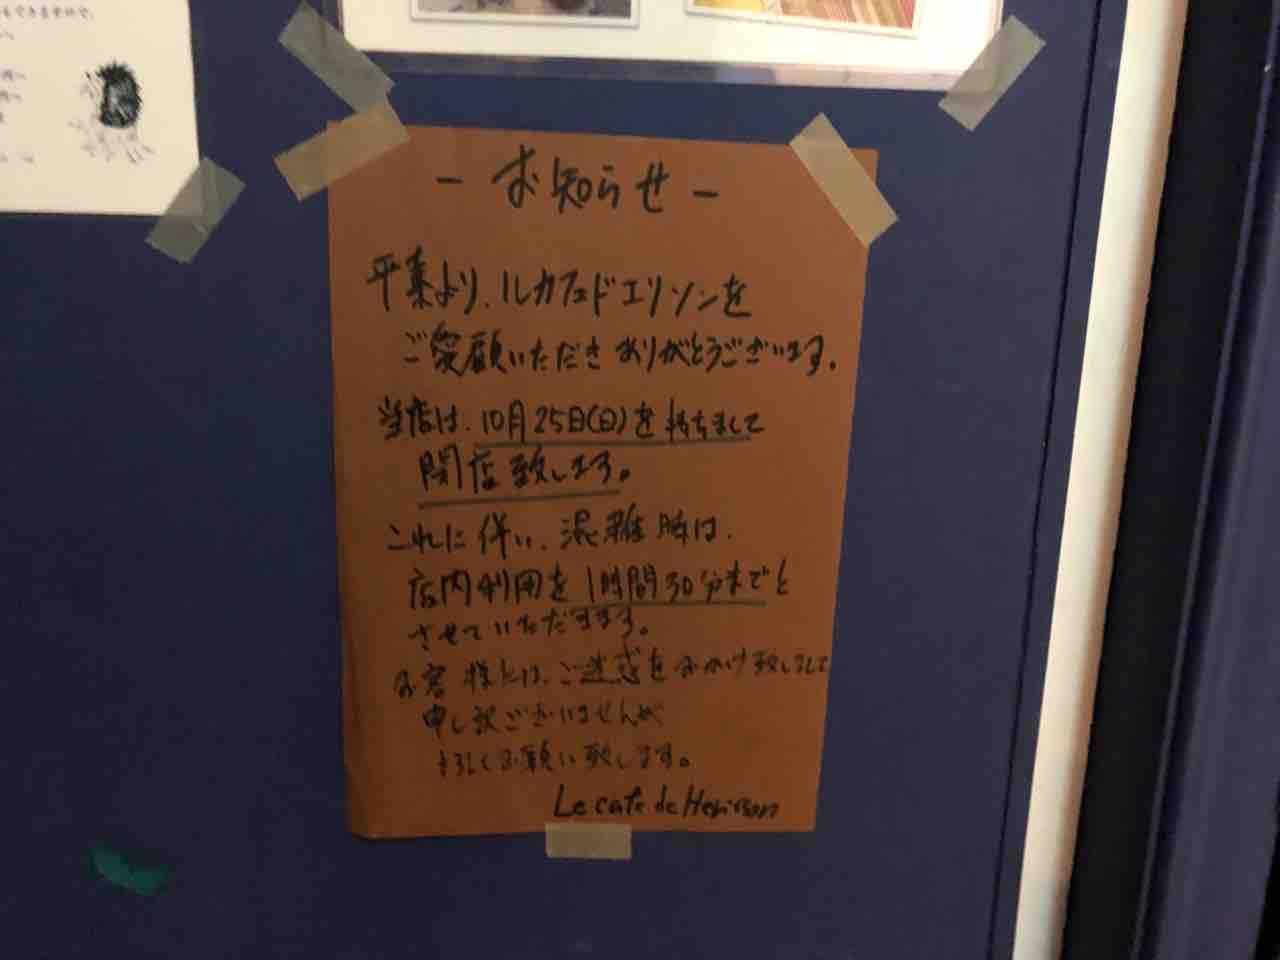 - お知らせ -
平素より、ルカフェドエリソンを
ご愛顧いただきありがとうございます。
当店は、10月25日(日)を持ちまして
閉店致します。
これに伴い、混雑時は、
店内利用を1時間30分までと
させていただきます。
お客様には、ご迷惑をおかけ致しまして
申し訳ございませんが
よろしくお願い致します。
Le cafe de Herisson